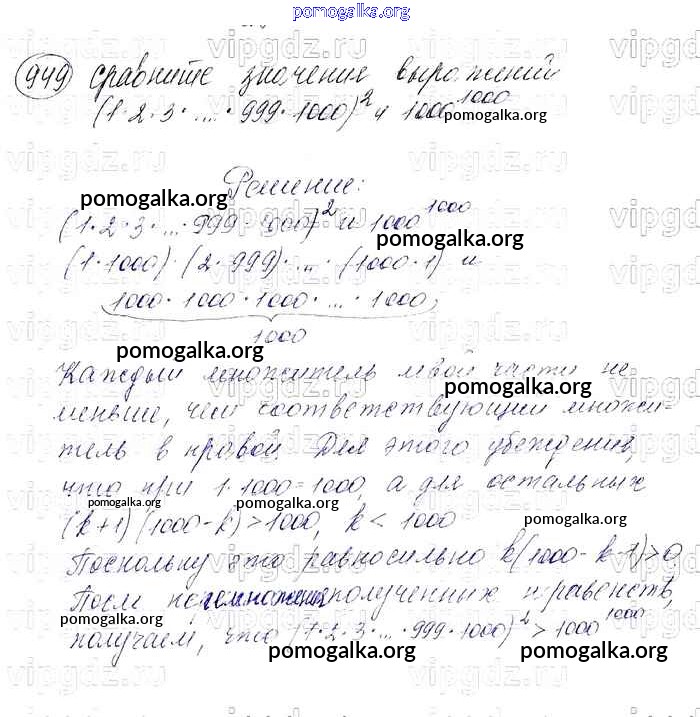 pomogalka.org
949 Сравните значение выражений
(1·2·3·...·999·1000)² и 1000¹⁰⁰⁰
pomogalka.org
Решение:
pomogalka.org
(1·2·3·...·999·1000)² и 1000¹⁰⁰⁰
pomogalka.org
(1·1000)·(2·999)·...·(1000·1) и
1000·1000·1000·...·1000,
1000
pomogalka.org
Каждый множитель левой части не
pomogalka.org
меньше, чем соответствующий множи-
тель в правой. Для этого убеждения,
что при 1·1000=1000, а для остальных
pomogalka.org pomogalka.org pomogalka.org
(k+1)(1000-k)>1000, k<1000
Поскольку это равносильно k(1000-k-1)>0
После полученных неравенств,
pomogalka.org
получаем, что (1·2·3·...·999·1000)²>1000¹⁰⁰⁰
pomogalka.org pomogalka.org
vipgdz.ru